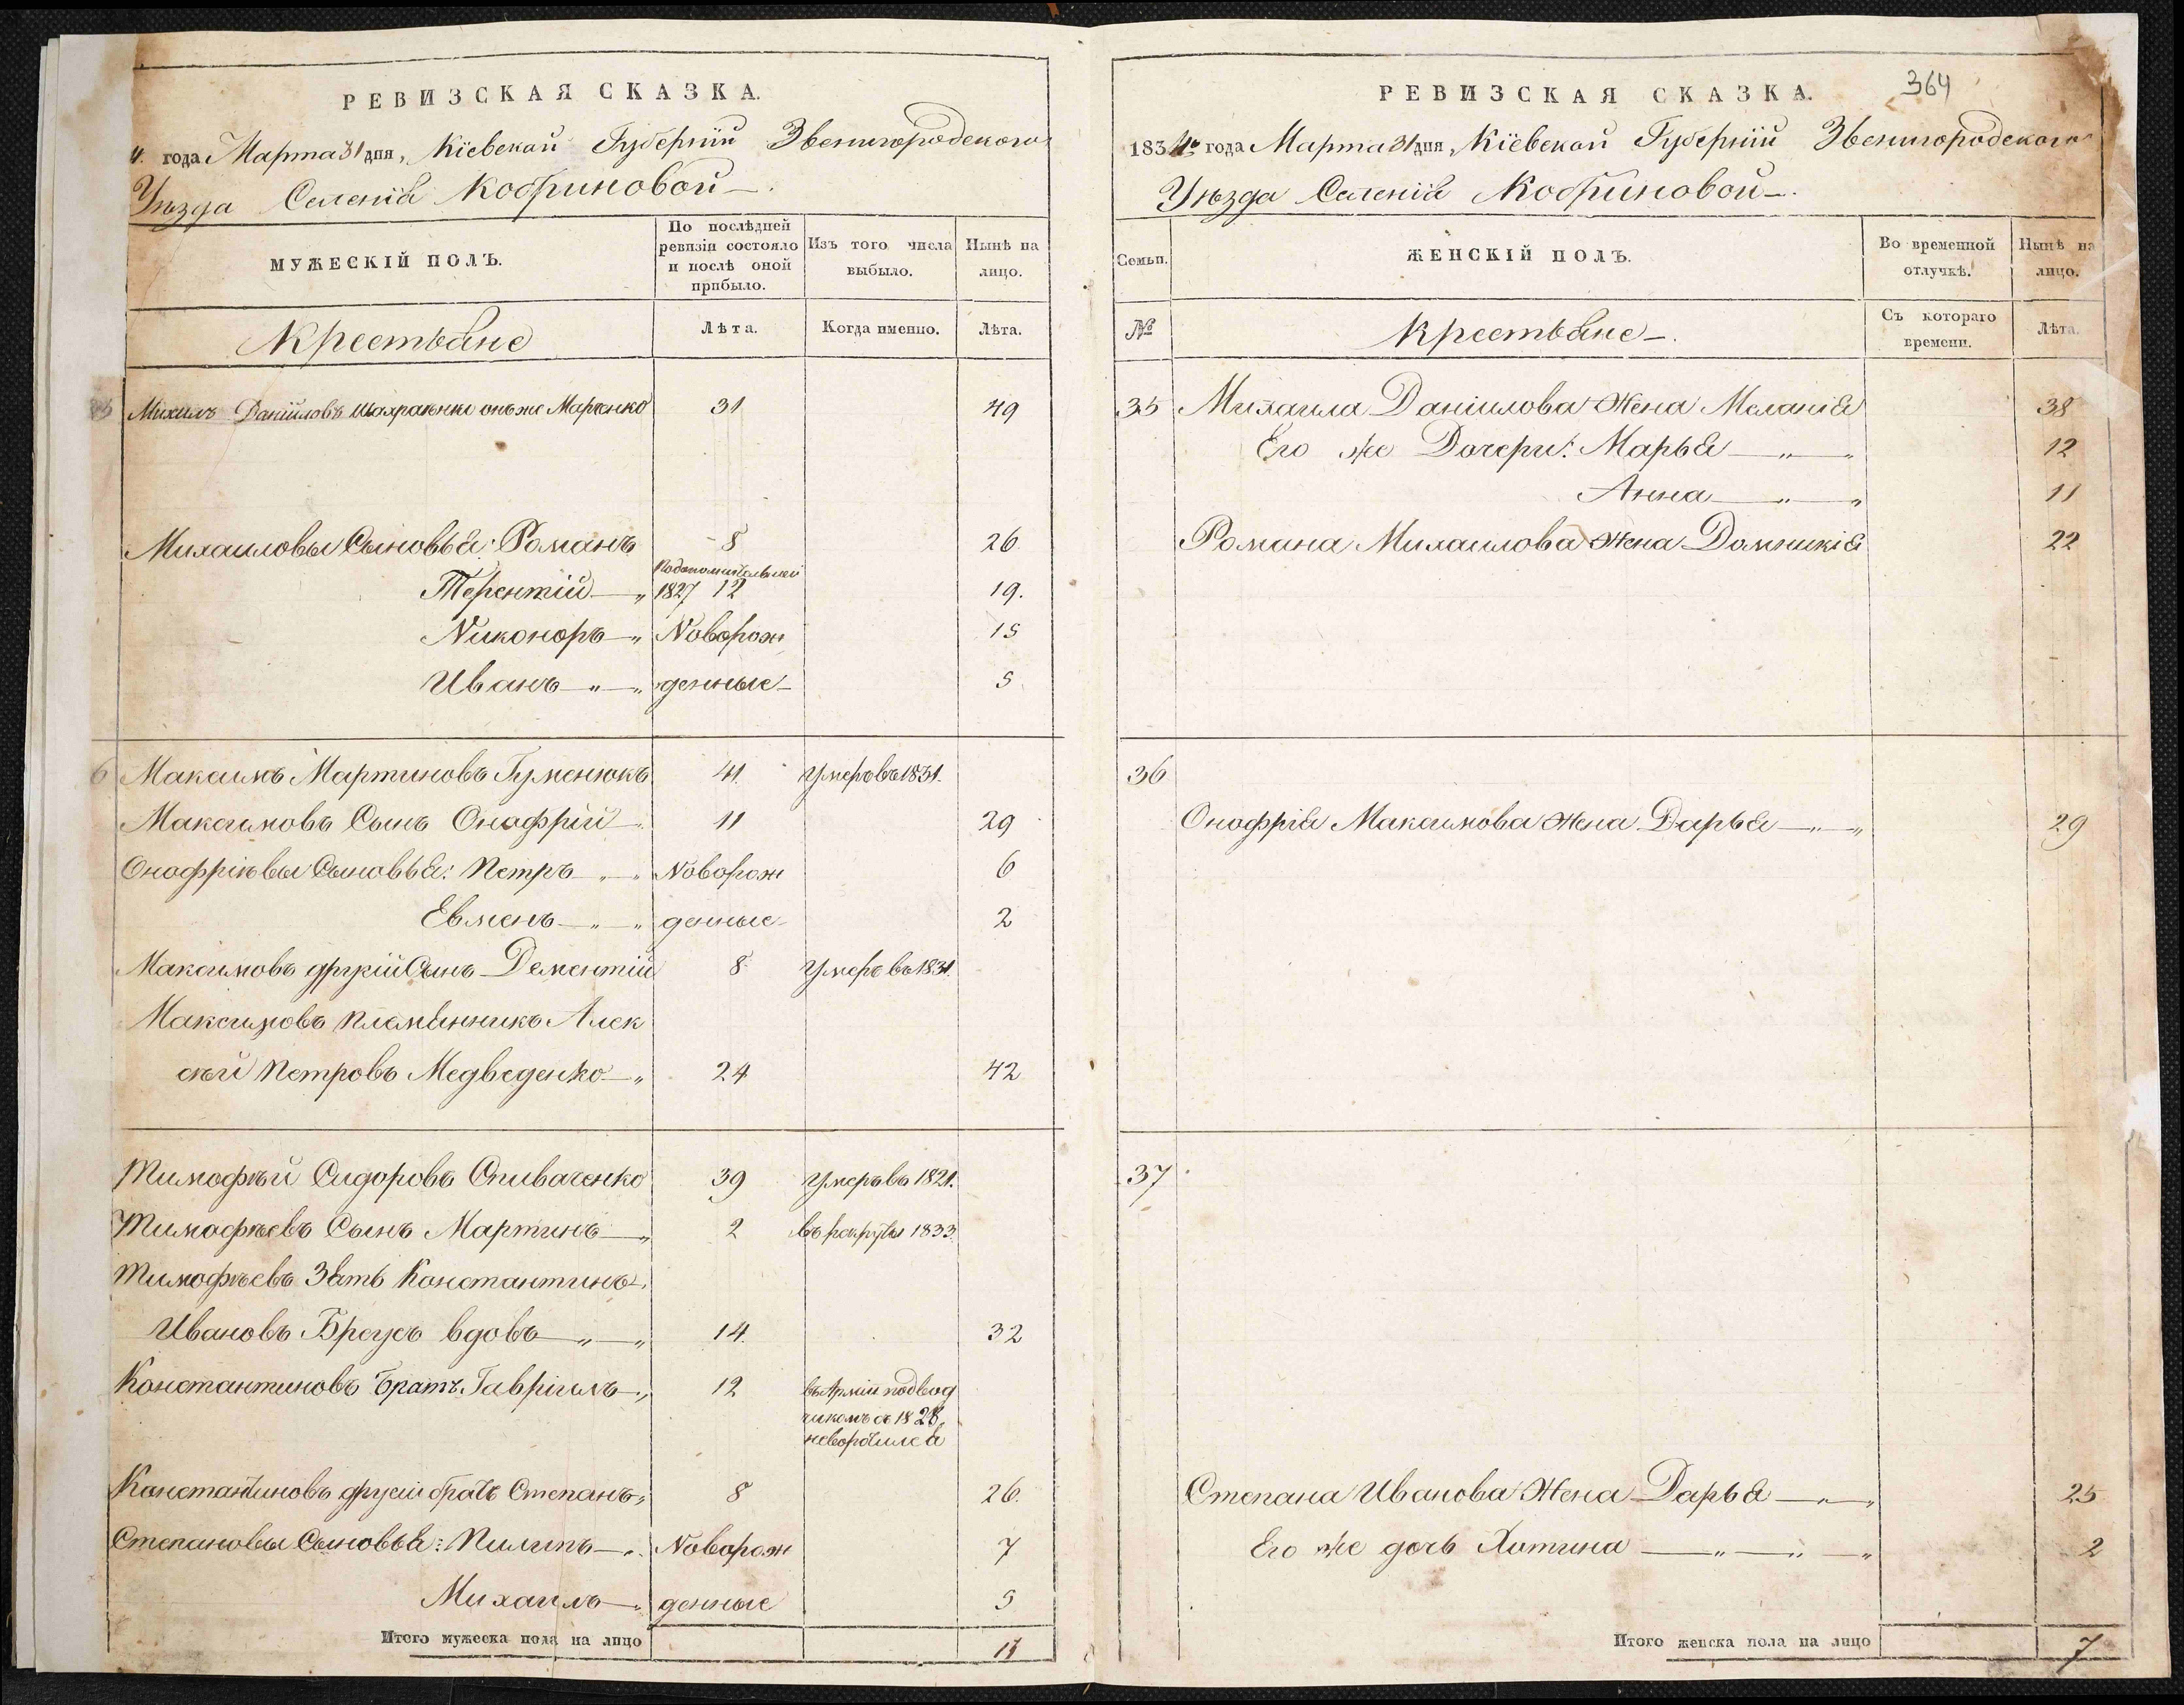 РЕВИЗСКАЯ СКАЗКА.
4. года Марта 31 дня, Кіевской Губерніи Звенигородского
Уѣзда Селенія Кобриновой
МУЖЕСКІЙ ПОЛЪ.
По послѣдней ревизіи состояло и послѣ оной прибыло.
Изъ того числа выбыло.
Нынѣ на лицо.
Крестьяне
Лѣта.
Когда именно.
Лѣта.
Михаилъ Даніиловъ онъ же Марченко 31 49
Михаиловы Сыновья: Романъ 8 26
Терентій 1827 12 19.
Никоноръ Новорож 15
Иванъ денные 5
6 Максимъ Мартиновъ Гуменюкъ 41. Умеръ въ 1831.
Максимовъ Сынъ Онофрій 11 29
Онофріевы Сыновья: Петръ Новорож 6
Евменъ денные 2
Максимовъ другій Сынъ Дементій 8 Умеръ въ 1831.
Максимовъ племянникъ Алек
сѣй Петровъ Медведенко 24 42
Тимофѣй Сидоровъ Спиваченко 39 Умеръ въ 1821.
Тимофѣевъ Сынъ Мартинъ 2 въ рекруты 1833
Тимофѣевъ Зять Константинъ
Ивановъ Бреусъ вдовъ 14. 32
Константиновъ братъ Гавріилъ 12 въ Арміи подвод
чикомъ съ 1828,
неворотился
Константиновъ другій братъ Степанъ 8 26.
Степановы Сыновья: Пилипъ Новорож 7
Михаилъ денные 5
Итого мужеска пола на лицо 11
РЕВИЗСКАЯ СКАЗКА. 364
1834го года Марта 31 дня, Кіевской Губерніи Звенигородского
Уѣзда Селенія Кобриновой
Семьи.
ЖЕНСКІЙ ПОЛЪ.
Во временной отлучкѣ.
Нынѣ на лицо.
№
Крестьяне
Съ котораго времени.
Лѣта.
35 Михаила Даніилова Жена Меланія 38
Его же Дочери: Марья 12
Анна 11
Романа Михаилова Жена Домникія 22
36
Онофрія Максимова Жена Дарья 29
37
Степана Иванова Жена Дарья 25
Его же дочь Хотина 2
Итого женска пола на лицо 7